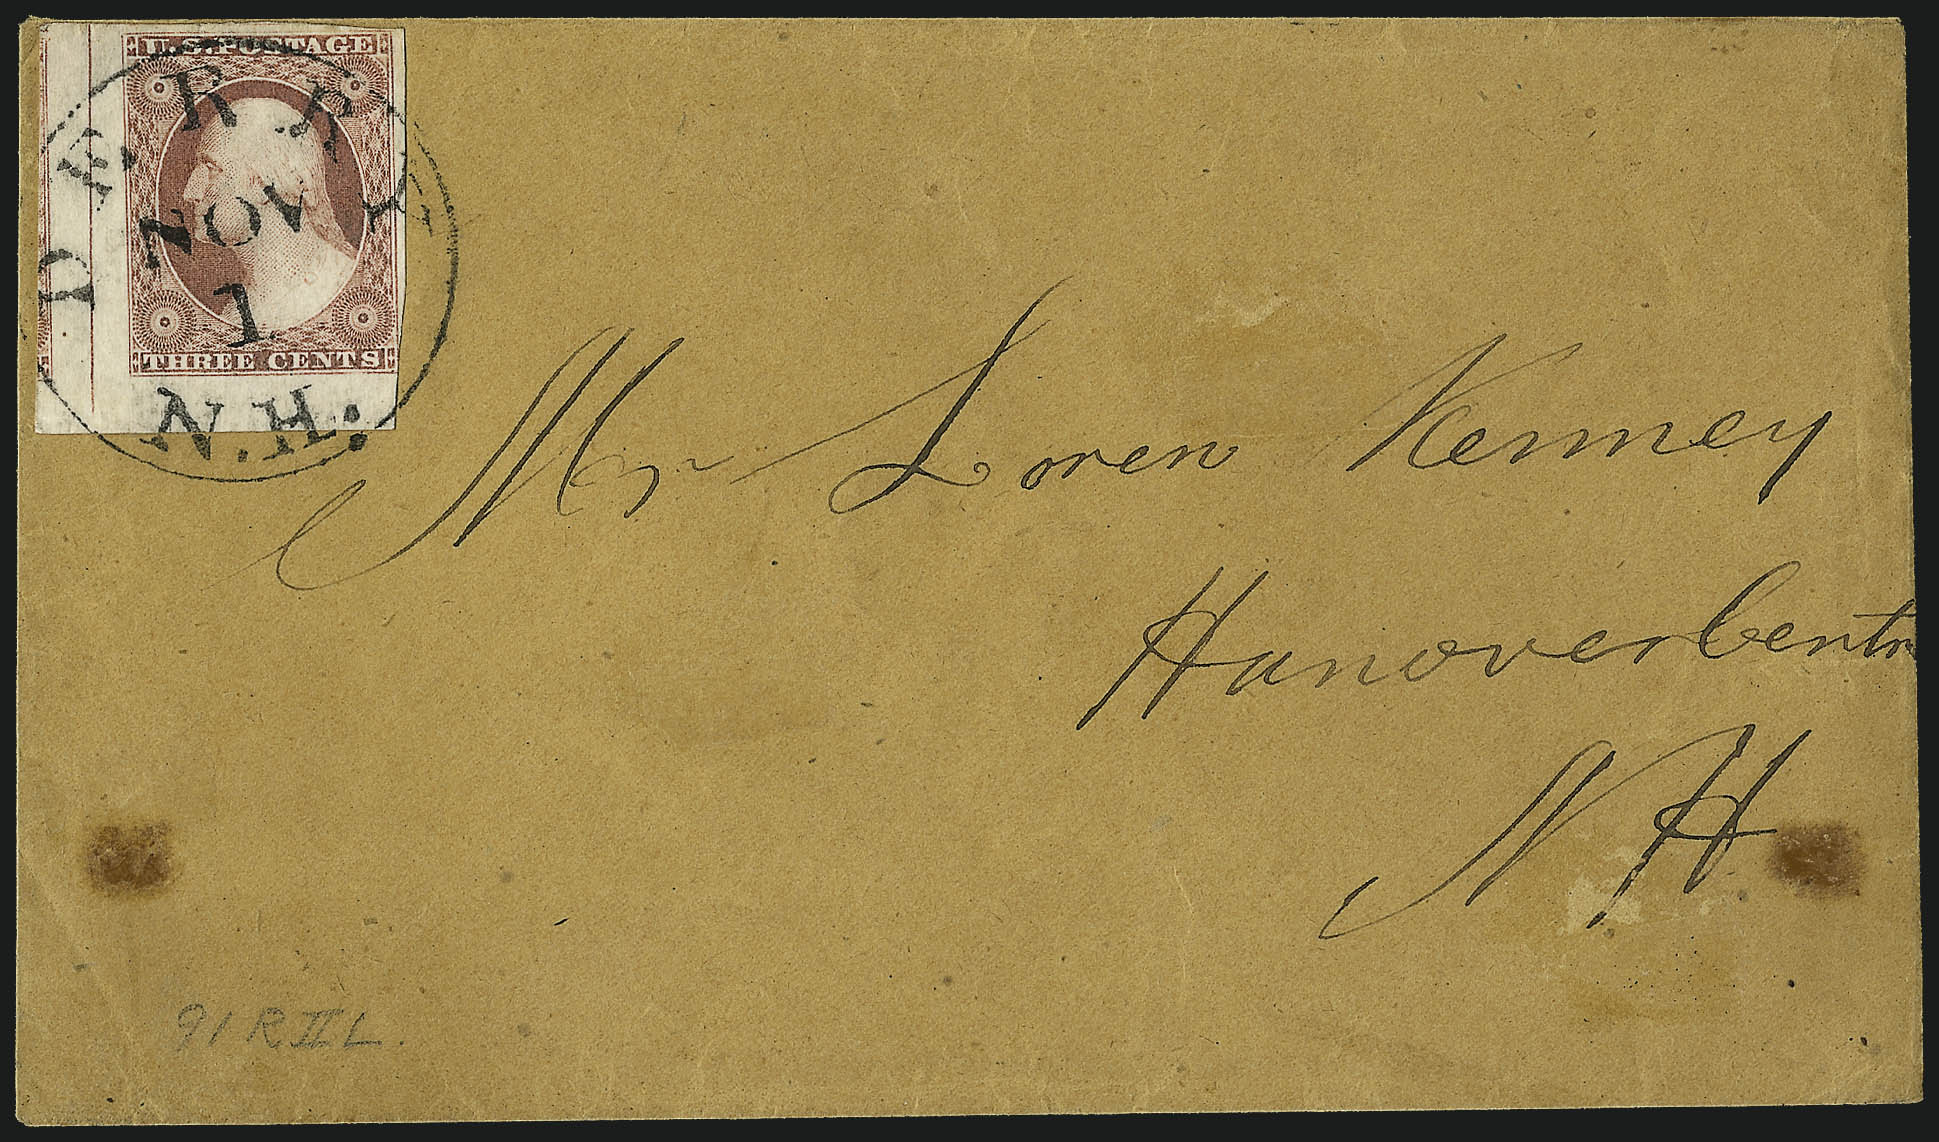 U.S. POSTAGE
THREE CENTS
DERRY
NOV
1
N.H.
Mr Loren Kenney
Hanover Centre
N H
91 R II L.